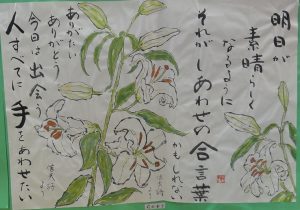 明日が
素晴らしく
なるように
それがしあわせの合言葉
かもしれない
ありがたい
ありがとう
今日は出会う
人すべてに手をあわせたい